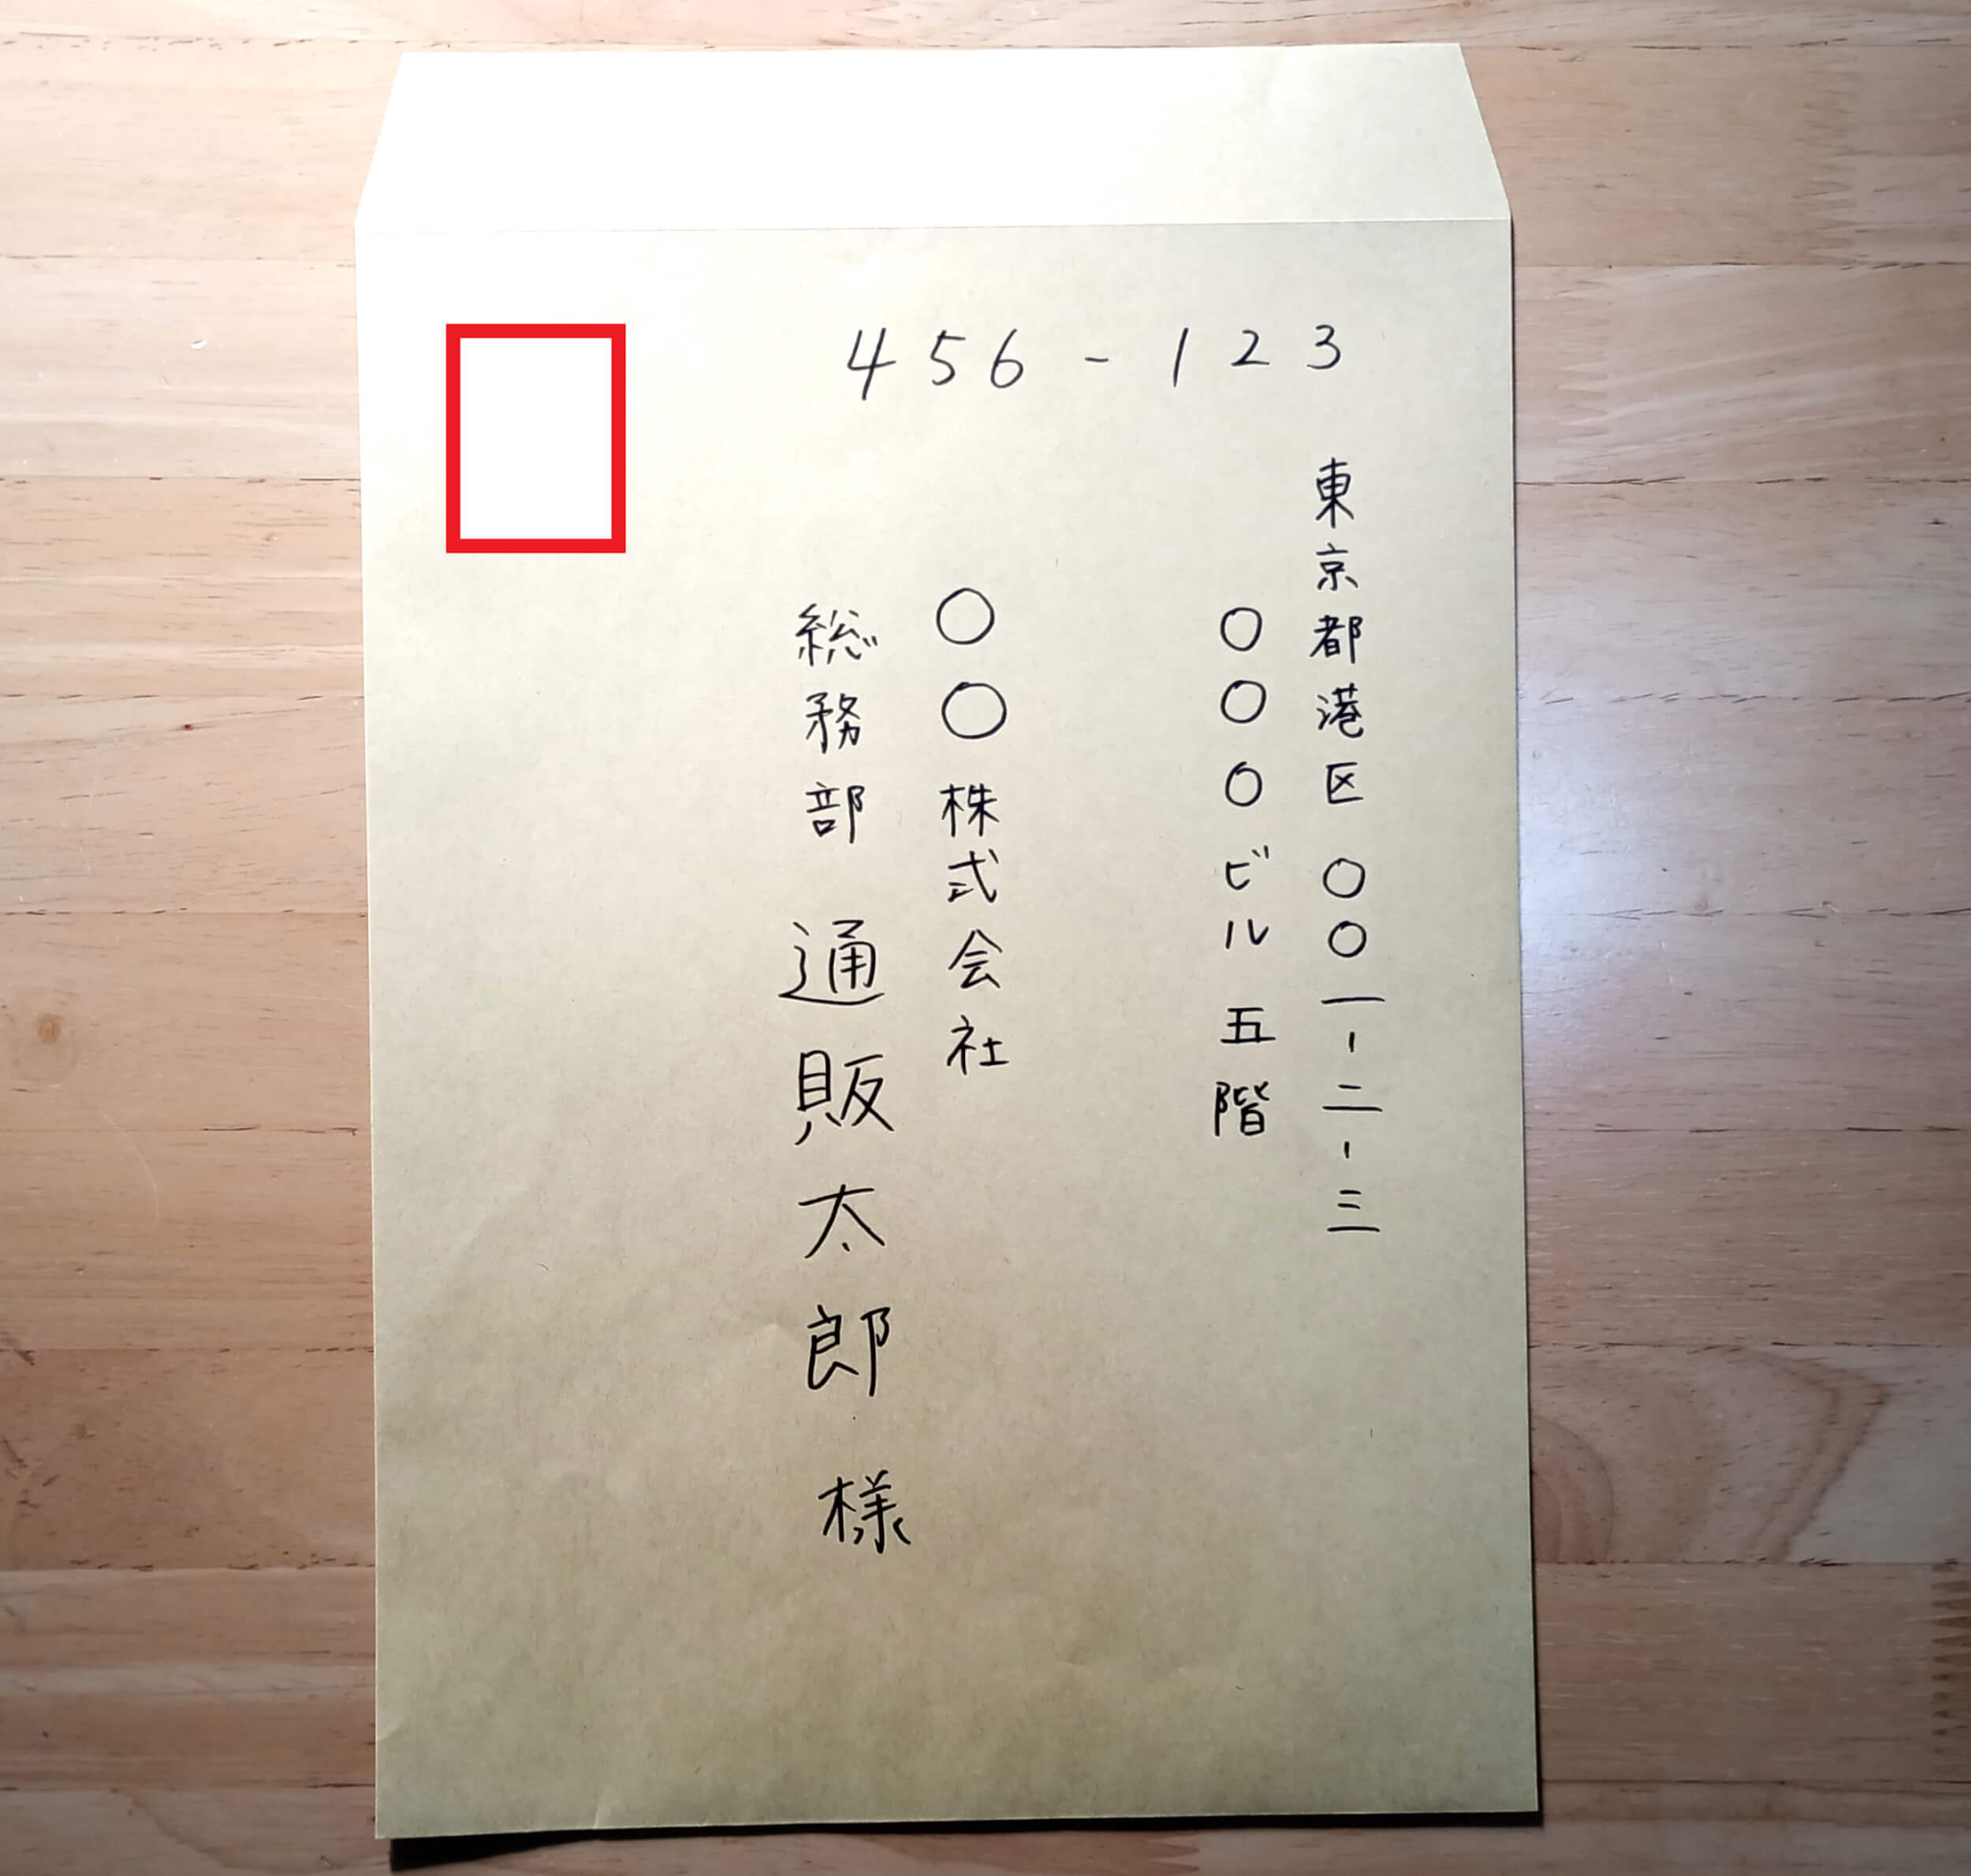 456-123
東京都港区〇〇一-二-三
〇〇〇ビル五階
〇〇株式会社
総務部 通販太郎 様